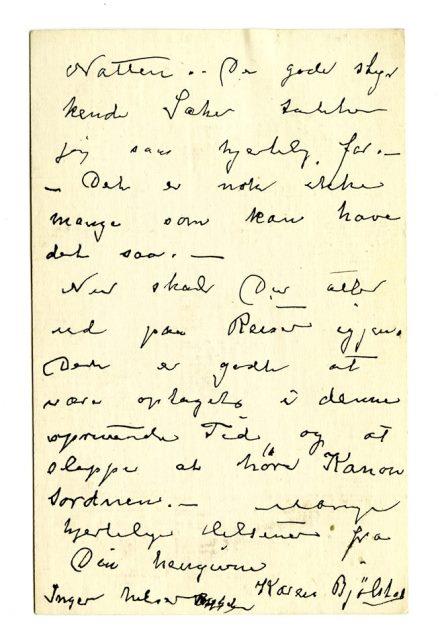 Natten. . De gode styr
kende Saker takker
jeg saa hjertelig for. —
— Det er nok ikke
mange som kan have
det saa. —
Nu skal Du atter
ud paa Reiser igjen.
Det er godt at
være optaget i denne
oprivende Tid, og at
slippe at høre Kanon
tordnen. — Mange
hjertelige Hilsener fra
Din hengivne
Karen Bjølstad
Inger hilser